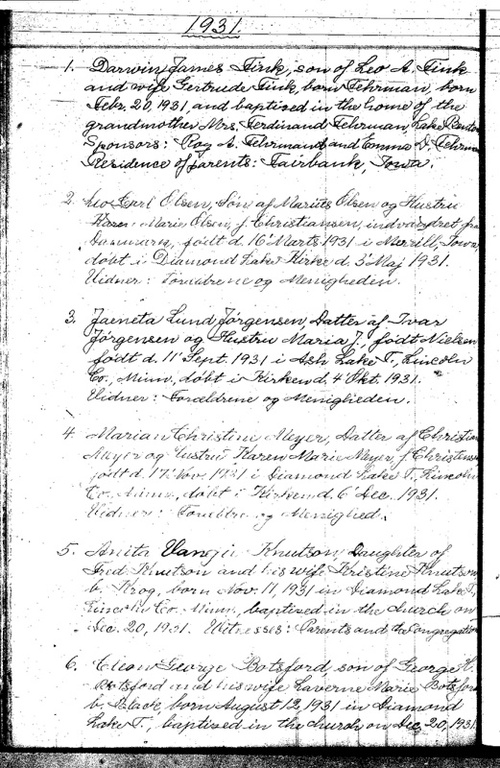 1931.
1. Darwin James Fink, son of Leo A. Fink
and wife Gertrude Fink, born Fehrman, born
Febr. 20, 1931, and baptised in the home of the
grandmother Mrs. Ferdinand Fehrman, Lake Benton
Sponsors: Roy A. Fehrman and Emma D. Fehrman
Residence of parents: Fairbank, Iowa.
2. Leo Carl Olsen, Søn af Marius Olsen og Hustru
Karen Marie Olsen, f. Christiansen, indvandret fra
Danmark, født d. 16' Marts 1931 i Merrill, Iowa,
døbt i Diamond Lake Kirke d. 3' Maj 1931.
Vidner: Forældrene og Menigheden.
3. Jaeneta Lund Jørgensen, Datter af Ivar
Jørgensen og Hustru Maria J., født Nielsen
født d. 11' Sept. 1931 i Ash Lake T., Lincoln
Co., Minn., døbt i Kirken d. 4' Okt. 1931.
Vidner: Forældrene og Menigheden.
4. Marian Christine Meyer, Datter af Christian
Meyer og Hustru Karen Marie Meyer, f. Christensen
født d. 17' Nov. 1931 i Diamond Lake T., Lincoln
Co. Minn., døbt i Kirken d. 6' Dec. 1931.
Vidner: Forældre og Menighed.
5. Anita Knutson Daughter of
Fred Knutson and his wife Kristine Knutson
b. Krog, born Nov. 11, 1931 in Diamond Lake T.,
Lincoln Co. Minn., baptised in the church on
Dec. 20, 1931. Witnesses: Parents and the Congregation
6. George Botsford, son of George H.
Botsford and his wife Laverne Marie Botsford
b. born August 12, 1931 in Diamond
Lake T., baptised in the church on Dec. 20, 1931